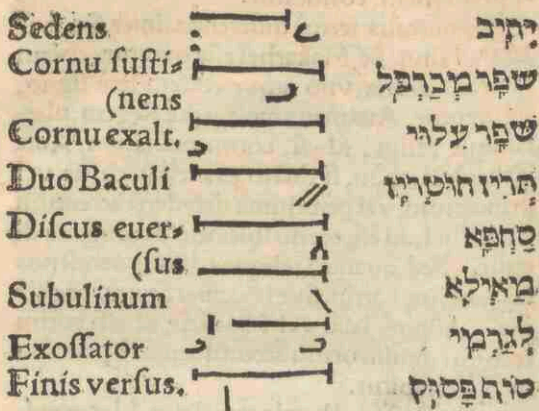 Sedens יְתִיב
Cornu susti= שפָר מְכַרְפֵּל
(nens
Cornu exalt. שֹפָר עִלּוּי
Duo Baculi תְּרֵין חוּטְרִין
Discus euer= סַחְפָּא
(sus
Subulinum מַאְיִלָא
Exossator לְגַרְמֵי
Finis versus. סוֹף פָּסוּק